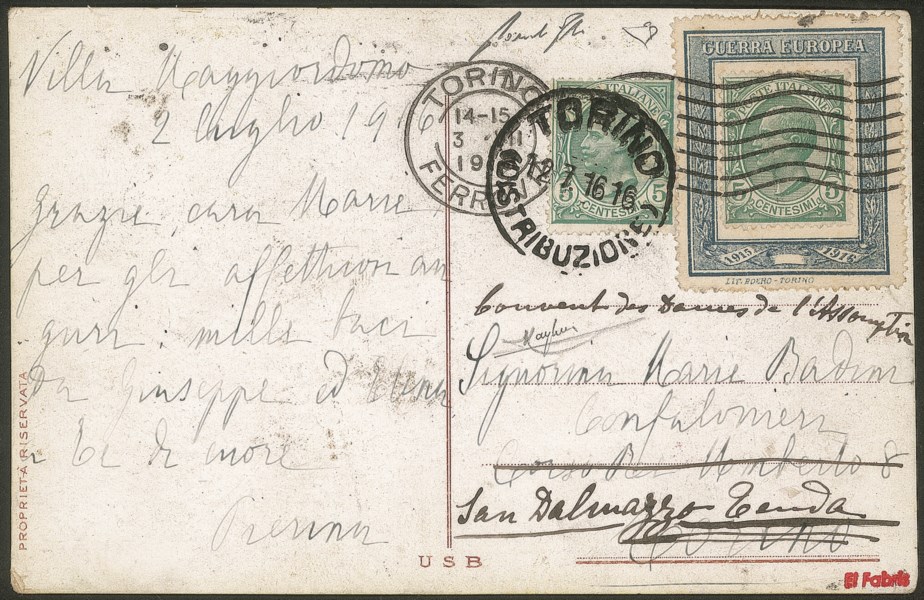 Villa Maggiordomo
2 luglio 1916
Grazie, cara Marie,
per gli affettuosi au
guri, mille baci
da Giuseppe ed Elena
a te di cuore
Pierina
PROPRIETÀ RISERVATA
USB
TORINO
14-15
3 VII
19
FERROVIA
TORINO
12 7 16 16
DISTRIBUZIONE
POSTE ITALIANE
5 5
CENTESIMI
GUERRA EUROPEA
POSTE ITALIANE
5 5
CENTESIMI
1915 1916
LIT. DOERO - TORINO
Couvent des Dames de l'Assomption
Signorina Marie Badini
Confalonieri
Corso Re Umberto 8
San Dalmazzo Tenda
Torino
El Fabris